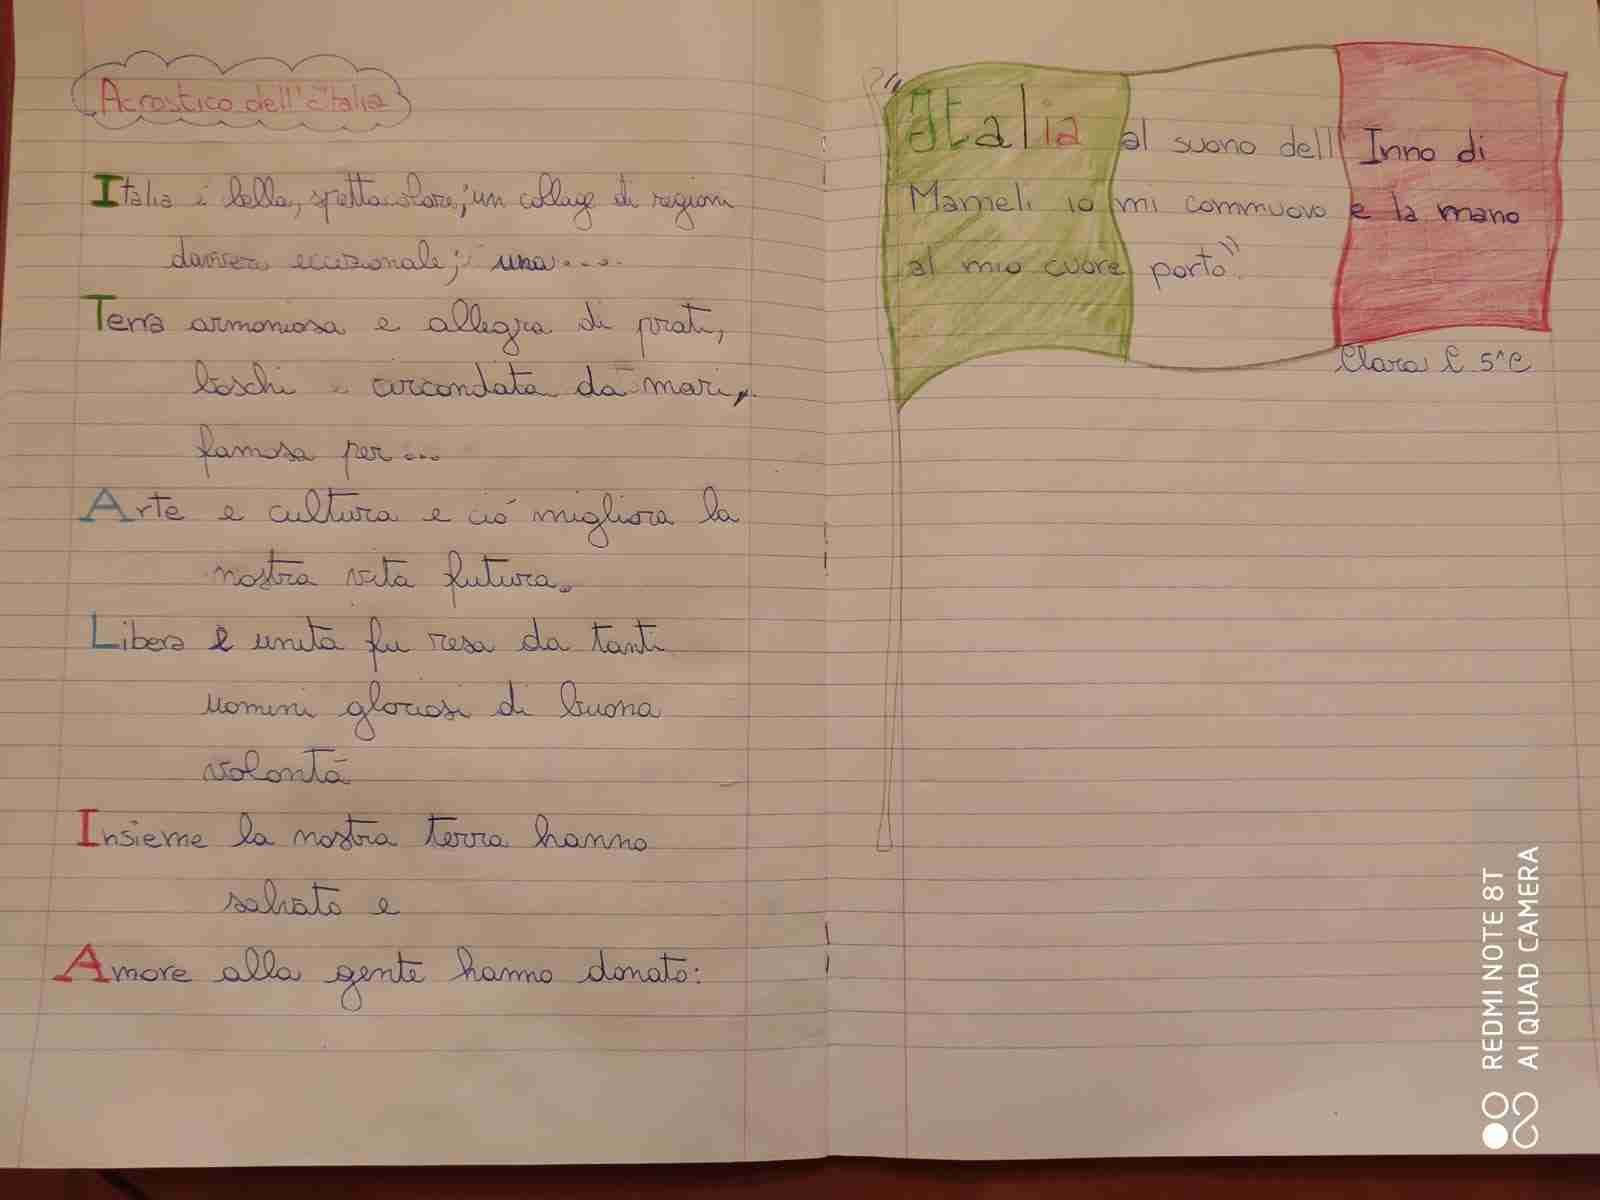 Acrostico dell'Italia
Italia è bella, spettacolare, un collage di regioni
davvero eccezionale; una....
Terra armoniosa e allegra di prati,
boschi e circondata da mari,
famosa per...
Arte e cultura e ciò migliora la
nostra vita futura.
Libera e unita fu resa da tanti
uomini gloriosi di buona
volontà
Insieme la nostra terra hanno
salvato e
Amore alla gente hanno donato:
"Italia al suono dell'Inno di
Mameli io mi commuovo e la mano
al mio cuore porto".
Clara C 5^C
REDMI NOTE 8T
AI QUAD CAMERA